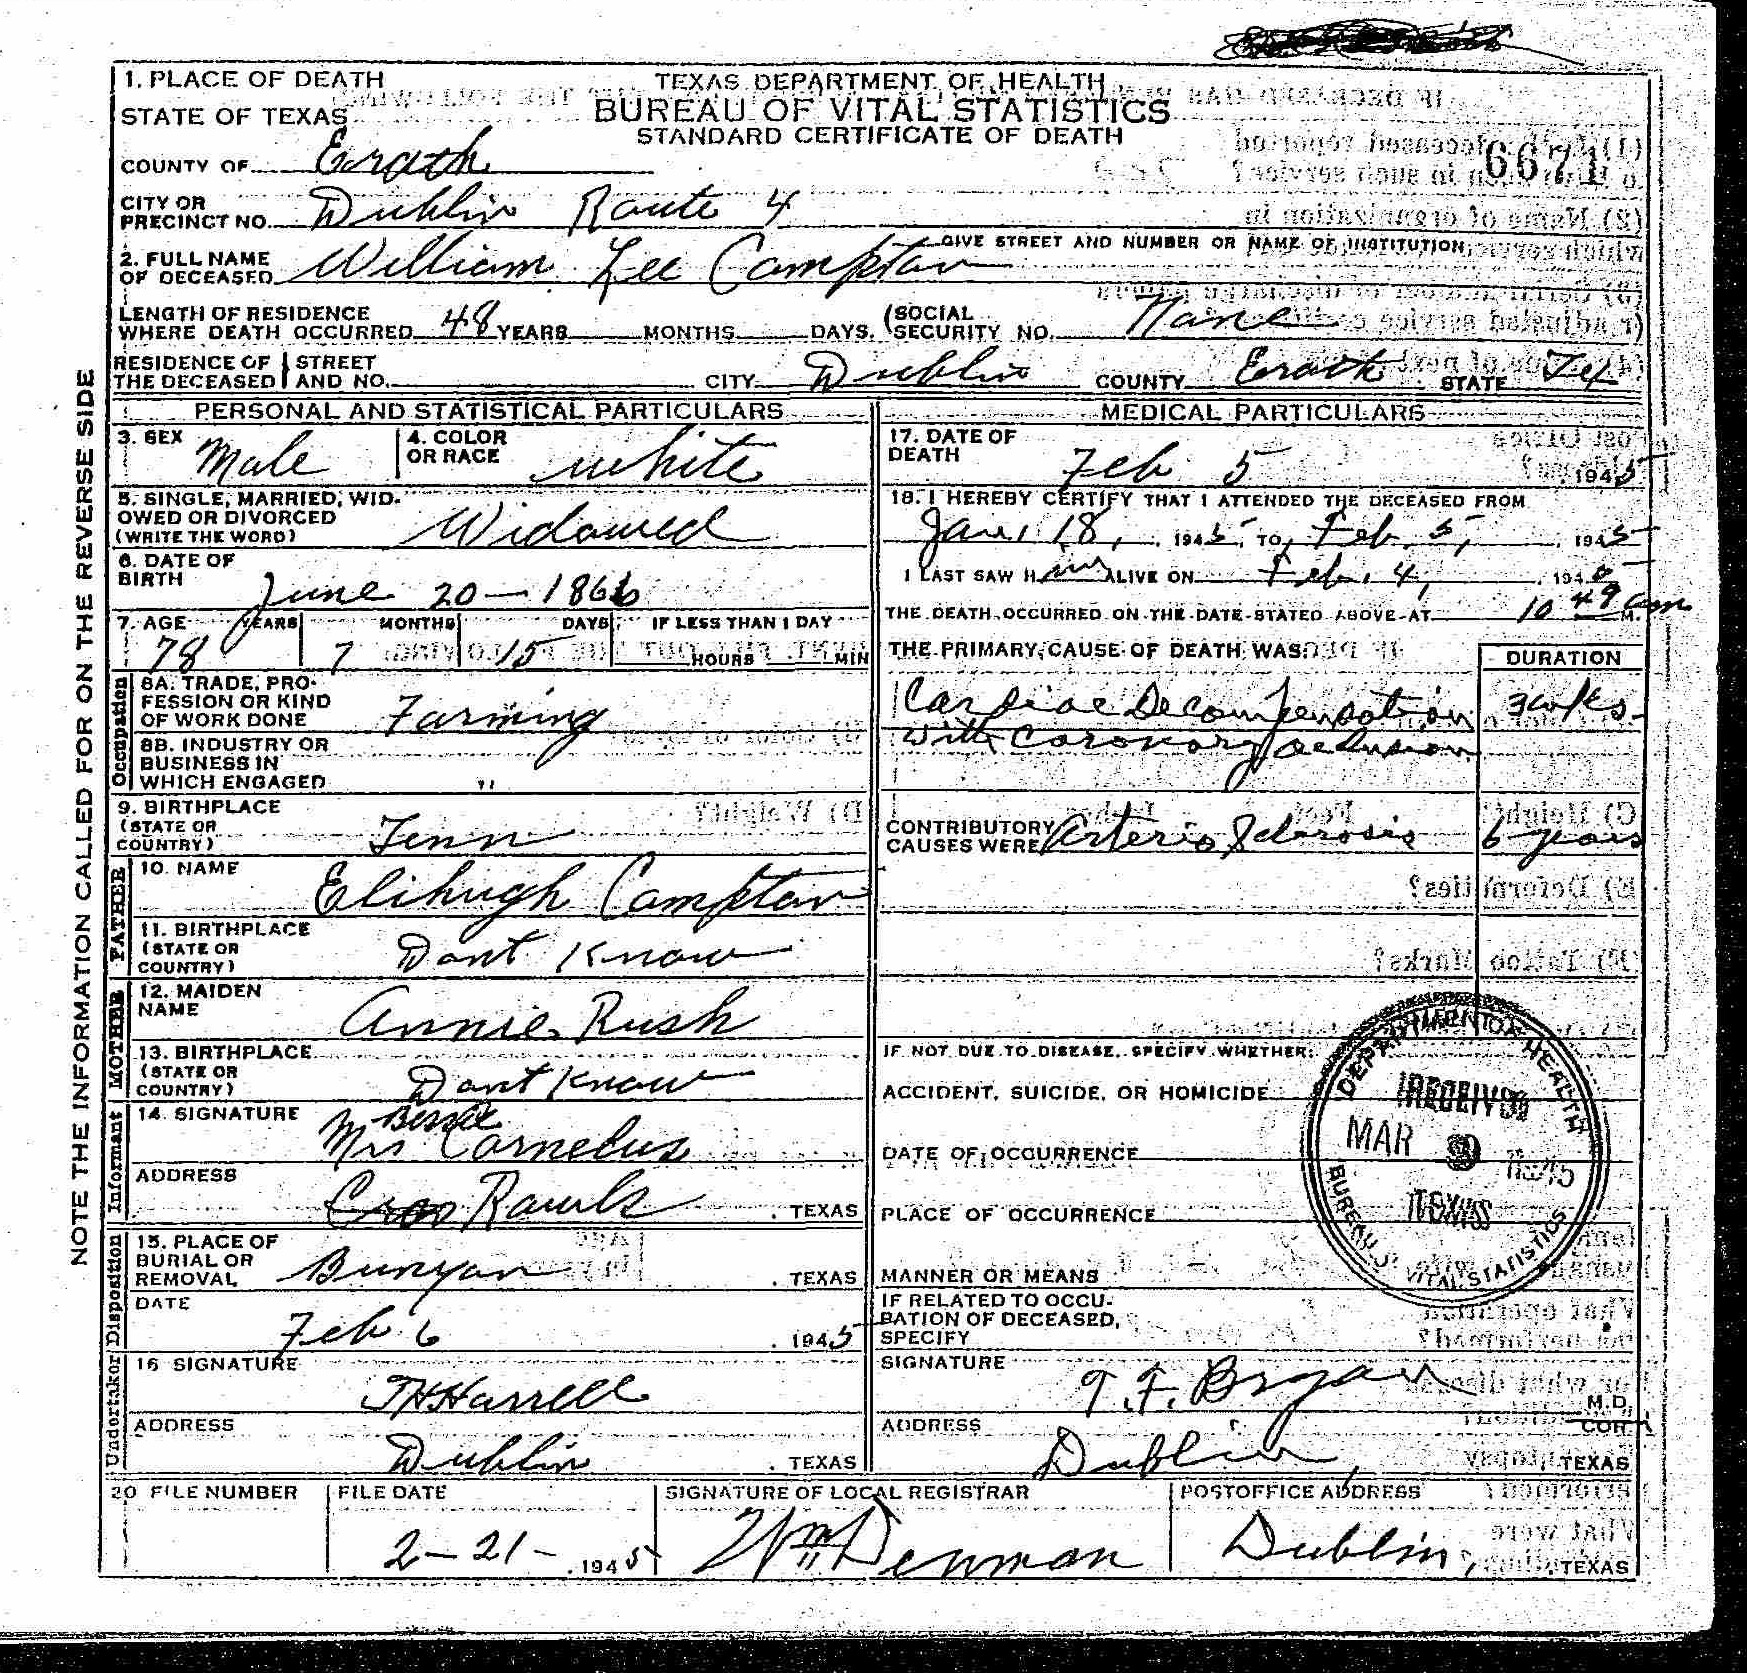 1. PLACE OF DEATH
STATE OF TEXAS
TEXAS DEPARTMENT OF HEALTH
BUREAU OF VITAL STATISTICS
STANDARD CERTIFICATE OF DEATH
6671
COUNTY OF Erath
CITY OR PRECINCT NO. Dublin Route 4
GIVE STREET AND NUMBER OR NAME OF INSTITUTION
2. FULL NAME OF DECEASED William Lee Compton
LENGTH OF RESIDENCE WHERE DEATH OCCURRED 48 YEARS MONTHS DAYS. (SOCIAL SECURITY NO. None
RESIDENCE OF THE DECEASED STREET AND NO. CITY Dublin COUNTY Erath STATE Tex
NOTE THE INFORMATION CALLED FOR ON THE REVERSE SIDE
PERSONAL AND STATISTICAL PARTICULARS
3. SEX Male
4. COLOR OR RACE white
5. SINGLE, MARRIED, WIDOWED OR DIVORCED (WRITE THE WORD) Widowed
6. DATE OF BIRTH June 20 - 1866
7. AGE YEARS MONTHS DAYS IF LESS THAN 1 DAY
78 7 15 HOURS MIN
Occupation
8A. TRADE, PROFESSION OR KIND OF WORK DONE Farming
8B. INDUSTRY OR BUSINESS IN WHICH ENGAGED "
9. BIRTHPLACE (STATE OR COUNTRY) Tenn
FATHER
10. NAME Elihugh Compton
11. BIRTHPLACE (STATE OR COUNTRY) Dont Know
MOTHER
12. MAIDEN NAME Annie Rush
13. BIRTHPLACE (STATE OR COUNTRY) Dont Know
Informant
14. SIGNATURE Mrs Bessie Cornelus
ADDRESS Rawls, TEXAS
Disposition
15. PLACE OF BURIAL OR REMOVAL Bunyan, TEXAS
DATE Feb 6, 1945
Undertaker
16 SIGNATURE TH Harrell
ADDRESS Dublin, TEXAS
MEDICAL PARTICULARS
17. DATE OF DEATH Feb 5 1945
18. I HEREBY CERTIFY THAT I ATTENDED THE DECEASED FROM
Jan. 18, 1945, TO Feb. 5, 1945
I LAST SAW Him ALIVE ON Feb. 4, 1945
THE DEATH OCCURRED ON THE DATE STATED ABOVE AT 10 49 am M.
THE PRIMARY CAUSE OF DEATH WAS: DURATION
Cardiac Decompensation 3 wks.
with coronary occlusion
CONTRIBUTORY CAUSES WERE Arterio Sclerosis 6 years
IF NOT DUE TO DISEASE, SPECIFY WHETHER:
ACCIDENT, SUICIDE, OR HOMICIDE
DATE OF OCCURRENCE
PLACE OF OCCURRENCE
MANNER OR MEANS
IF RELATED TO OCCUPATION OF DECEASED, SPECIFY
SIGNATURE T. F. Bryan M.D.
COR
ADDRESS Dublin, TEXAS
DEPARTMENT OF HEALTH
RECEIVED
MAR 9 1945
TEXAS
BUREAU OF VITAL STATISTICS
20 FILE NUMBER
FILE DATE 2-21-1945
SIGNATURE OF LOCAL REGISTRAR Wm Denman
POSTOFFICE ADDRESS Dublin, TEXAS